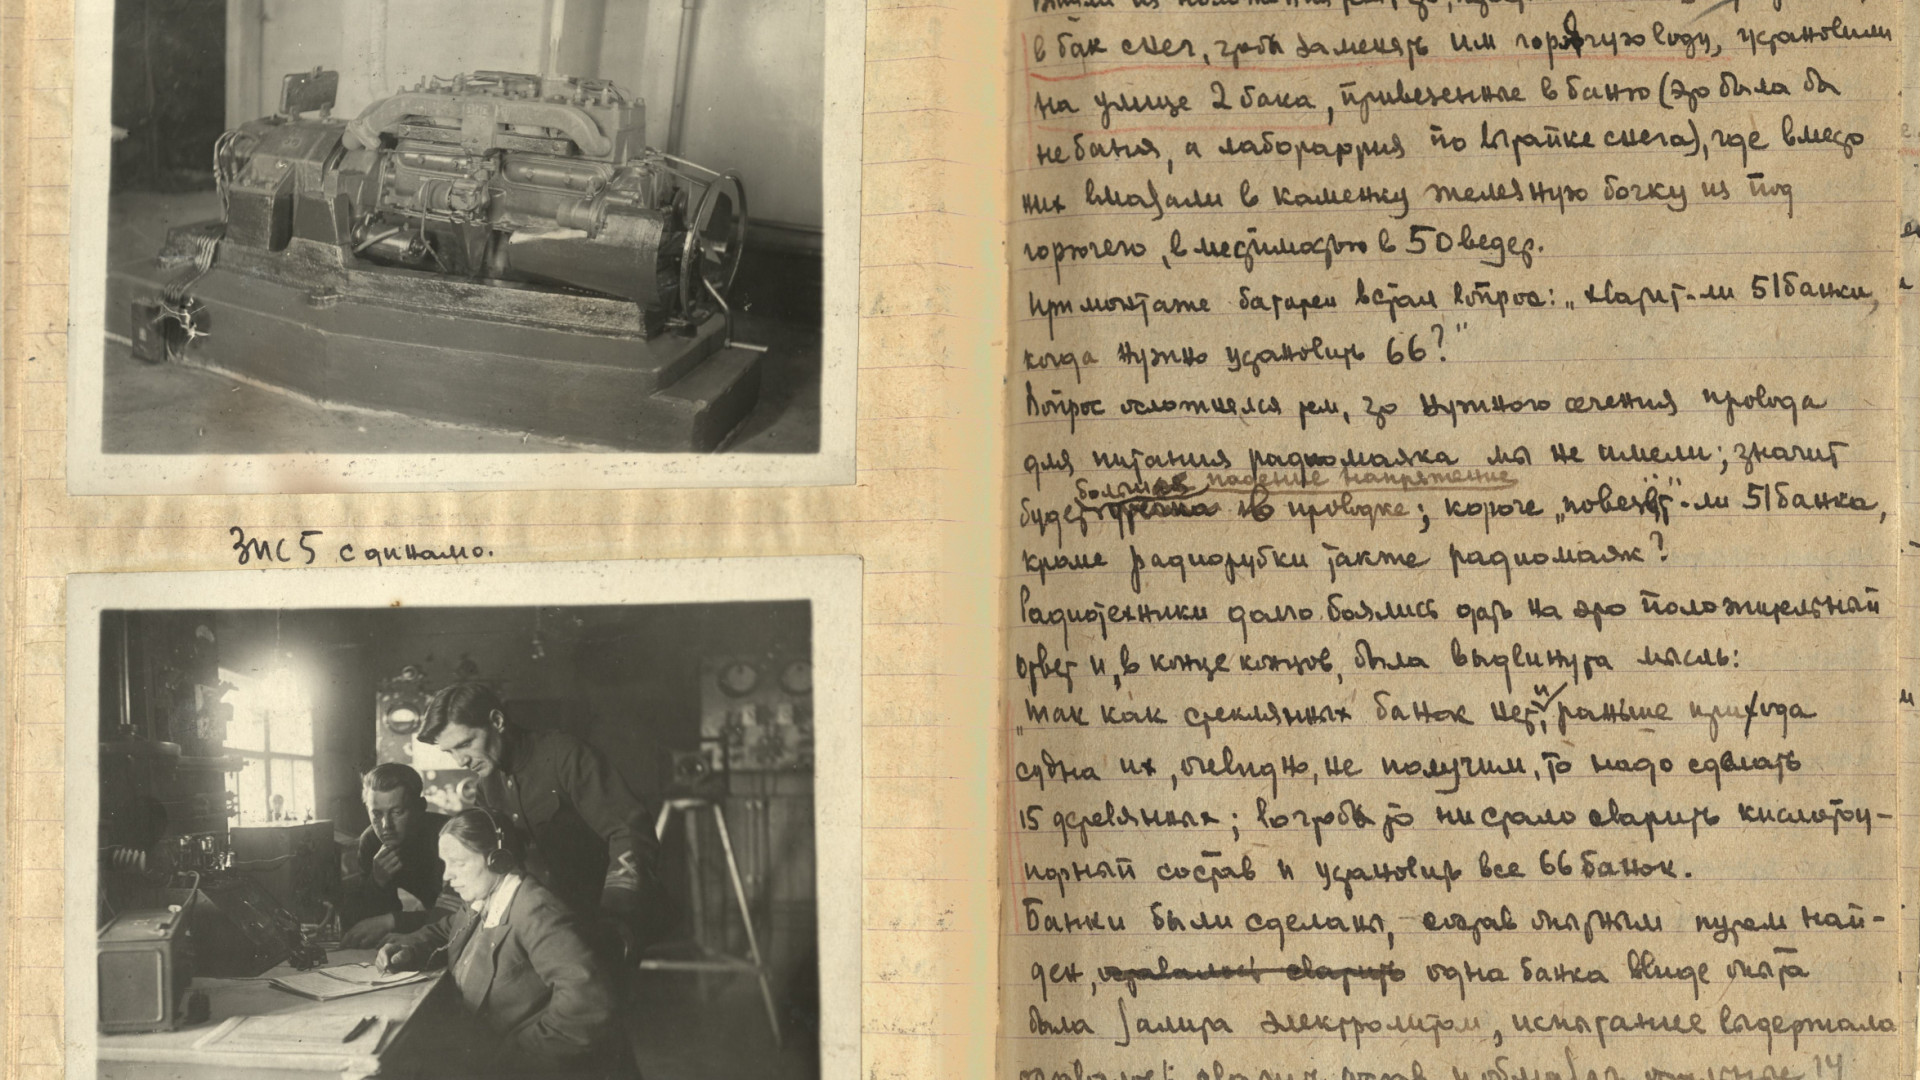 ЗИС 5 с динамо.
в бак снег, чтобы заменять им горячую воду, установили
на улице 2 бака, привезенные в баню (это была бы
не баня, а лаборатория по вытапке снега), где вместо
них вмазали в каменку железную бочку из под
горючего, вместимостью в 50 ведер.
При монтаже батареи встал вопрос: „Хватит-ли 51 банки,
когда нужно установить 66?"
Вопрос осложнялся тем, что нужного сечения провода
для питания радиомаяка мы не имели; значит
большое падение напряжение
будет в проводке; короче „повезет"-ли 51 банка,
кроме радиорубки также радиомаяк?
Радиотехники долго боялись дать на это положительный
ответ и, в конце концов, была выдвинута мысль:
„Так как стеклянных банок нет, и раньше прихода
судна их, очевидно, не получим, то надо сделать
15 деревянных; во чтобы то ни стало сварить кислотоу-
порный состав и установить все 66 банок.
Банки были сделаны, состав опытным путем най-
ден, оставалось сварить одна банка ввиде опыта
была залита электролитом, испытание выдержала